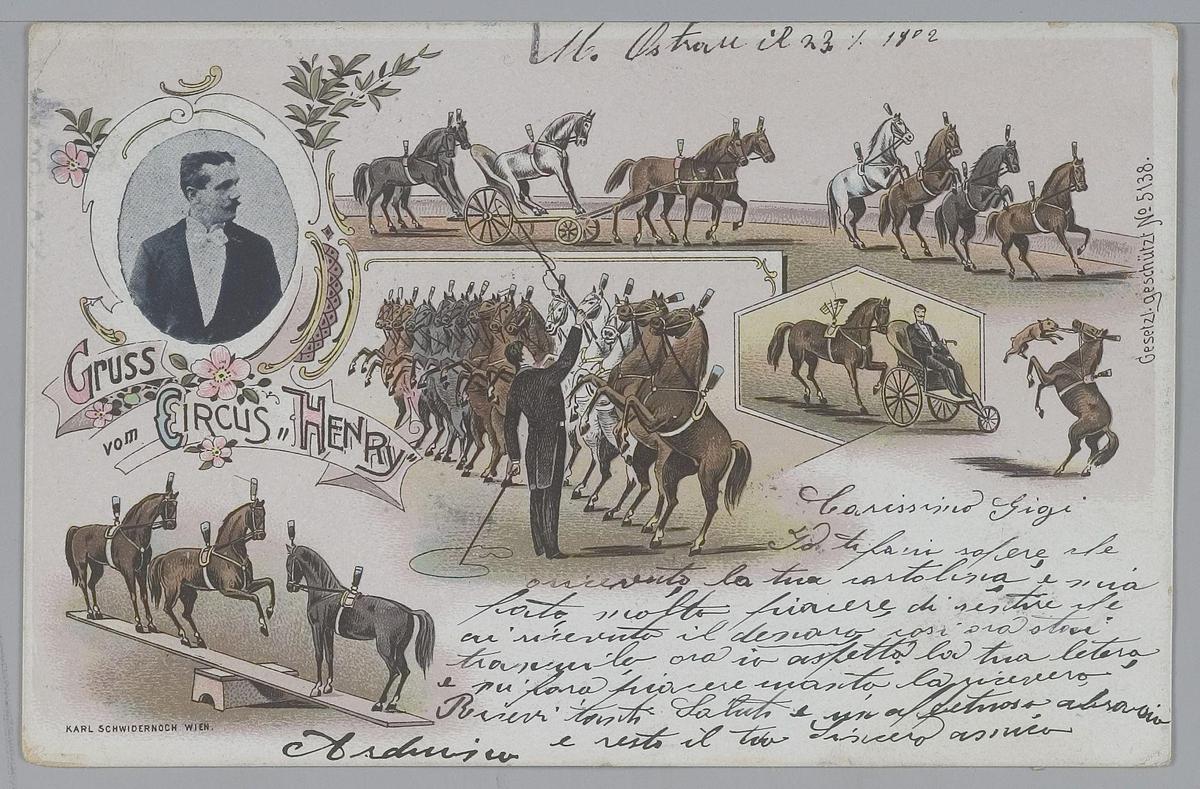 M. Ostrau il 23 / 1902
Gesetzl. geschützt No. 5138.
GRUSS
vom CIRCUS „HENRY"
Carissimo Gigi
Io ti facio sapere che
o ricevuto la tua cartolina, e mia
fatto molto piacere, di sentire che
ai ricevuto il denaro così ora stai
tranquilo ora io aspetto la tua letera,
e mi fara piacere quanto la ricevero
Ricevi tanti Saluti e un afetuoso abracio
e resto il tuo Sincero amico
Arduino
KARL SCHWIDERNOCH WIEN.